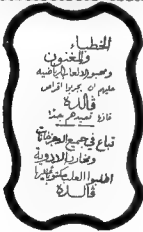 الخطباء
والمغنون
ومحبو الالعاب الرياضية
عليهم ان يجربوا اقراص
ڤالدة
فانها تفيدهم جدًا
تباع في جميع الاجزاخانات
ومخازن الادوية
اطلبوا العلب مكتوب عليها
ڤالدة